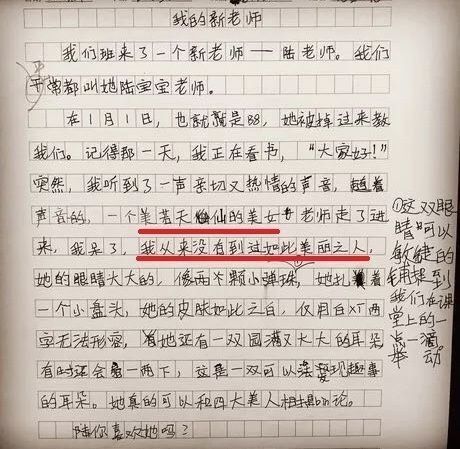 我的新老师
我们班来了一个新老师——陆老师。我们
平常都叫她陆宝宝老师。
在1月1日，也就是88，她被掉过来教
我们。记得那一天，我正在看书，“大家好！”
突然，我听到了一声亲切又热情的声音，趁着
声音的，一个美若天仙的美女老师走了进
来，我呆了，我从来没有到过如此美丽之人，
她的眼睛大大的，像两个颗小弹珠，①她扎着
一个小盘头，她的皮肤如此之白，仅用白XX两
字无法形容，有她还有一双圆满又大大的耳朵，
有时还会一两下，这是一双可以发现趣事
的耳朵。她真的可以和四大美人相提bìn论。
陆你喜欢她吗？
①这双眼
睛可以
敏健的
捕捉到
我们在课
堂上的一
点一滴，
举动